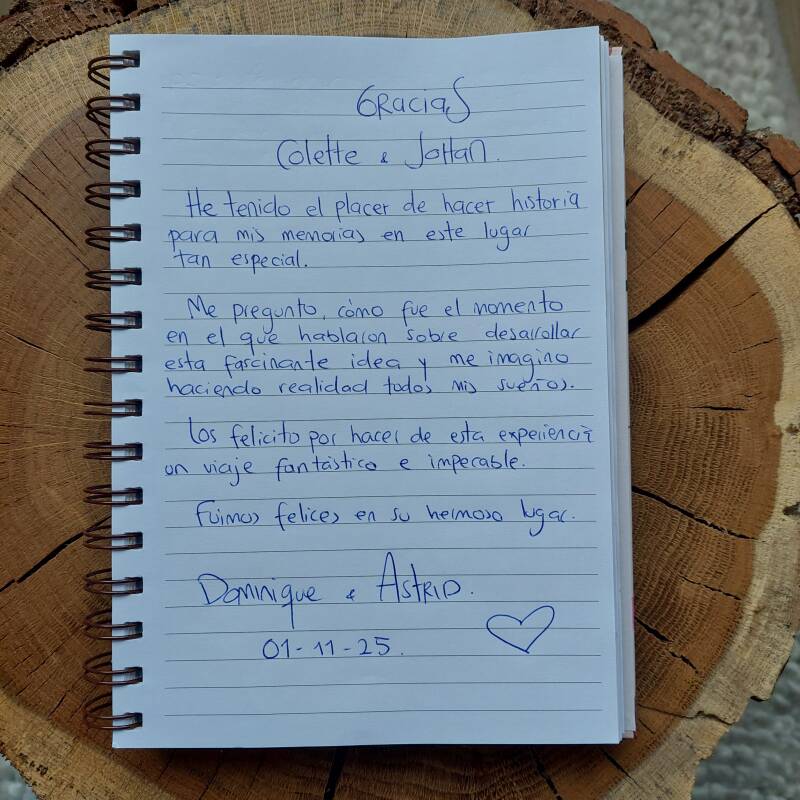 Gracias
Colette & Johan.
He tenido el placer de hacer historia
para mis memorias en este lugar
tan especial.
Me pregunto, cómo fue el momento
en el que hablaron sobre desarrollar
esta fascinante idea y me imagino
haciendo realidad todos mis sueños.
Los felicito por hacer de esta experiencia
un viaje fantástico e impecable.
Fuimos felices en su hermoso lugar.
Dominique & Astrid.
01-11-25.